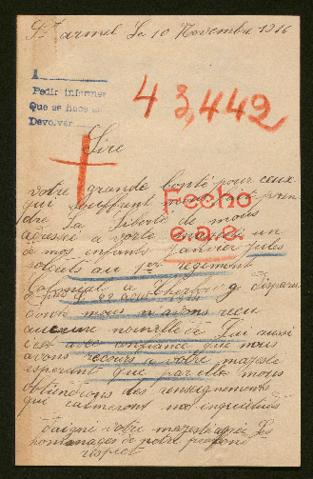 St Armel Le 10 Novembre 1916
1
Pedir informes
Que se hace
Devolver
43,442
Sire
votre grande bonté pour ceux
qui souffrent nous fait pren
dre la liberté de nous
adressé a votre majesté un
de nos enfants Janvier Jules
soldat au 1er regiment
Colonial a Cherbourg disparu
le 22 août 1914
dont nous n'avons reçu
aucune nouvelle de lui aussi
c'est avec confiance que nous
avons recours a votre majesté
esperant que par elle nous
obtiendrons des renseignements
qui calmeront nos inquiétudes
Daigné votre majesté agréé les
hommages de notre profond
respect
Fecho
e.a.e.